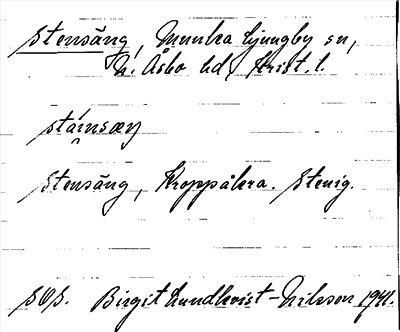 Stensäng, Munka Ljungby sn,
N. Åsbo hd, Krist. l.
Stensäng, Kroppåkra. Stenig.
SOS. Birgit Lundkvist-Nilsson 1941.